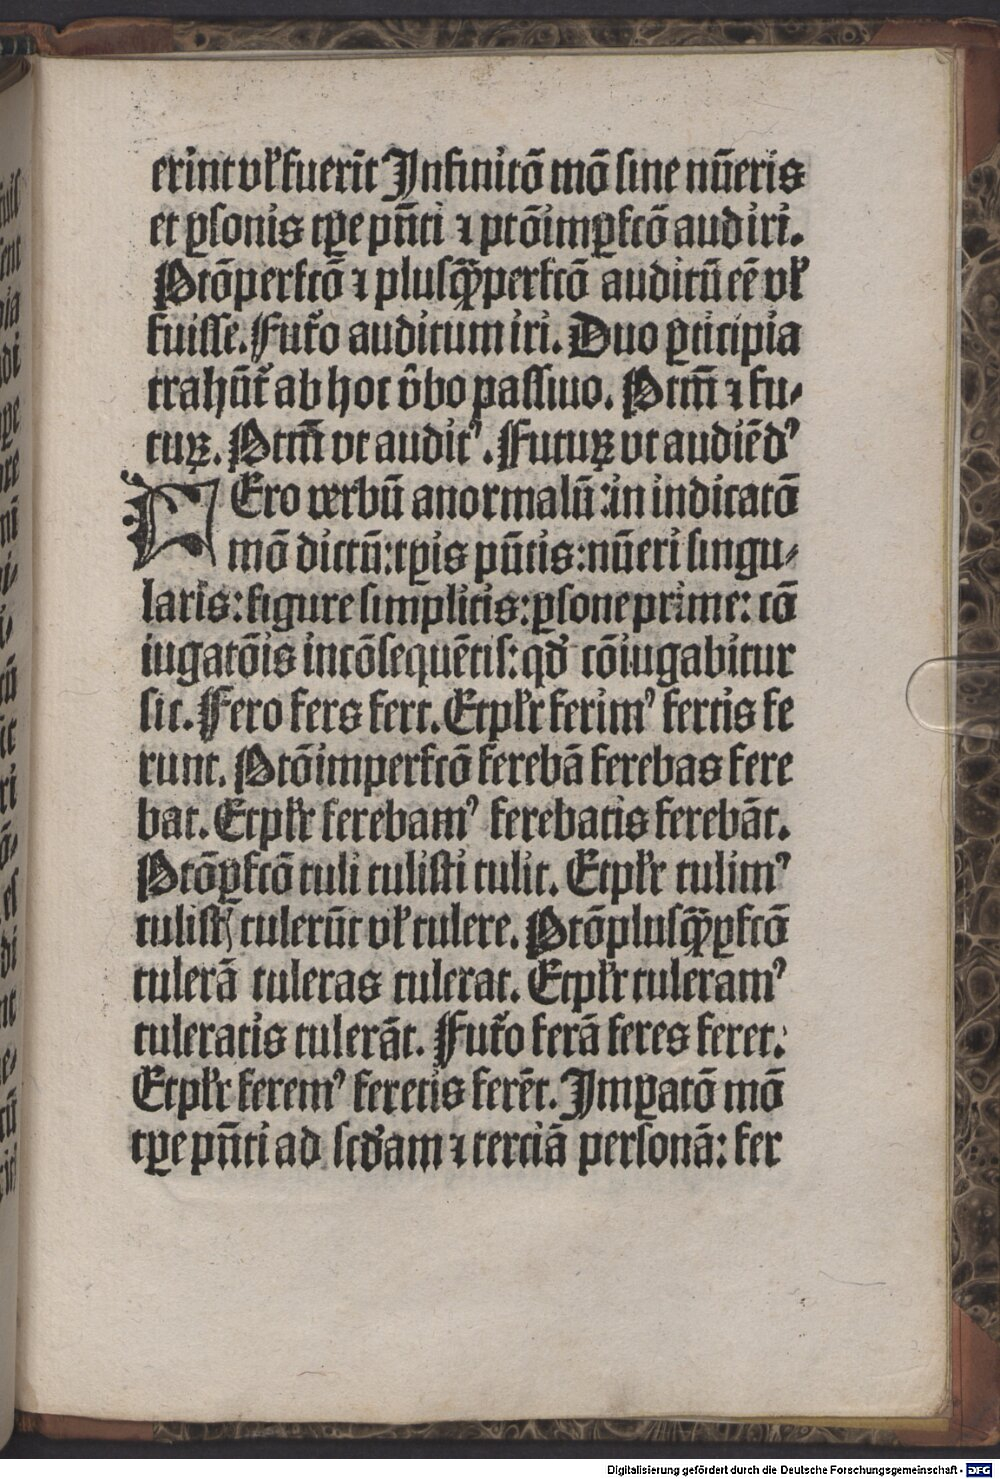 erint vl̛ fuerīt Infinitō mō sine nūeris
et ꝑsonis tꝑe pn̄ti ⁊ ptōimꝑfctō audiri.
Ptōperfctō ⁊ plusq̄ꝫperfctō auditū eē vl̛
fuisse. Fut̛o auditum iri. Duo ꝑticipia
trahūt̛ ab hoc v̄bo passiuo. Ptm̄ ⁊ fu⸗
turꝝ. Ptm̄ vt auditꝰ. Futurꝝ vt audiēdꝰ
FEro verbū anormalū: in indicatō
mō dictū: tꝑis pn̄tis: nūeri singu⸗
laris: figure simplicis: ꝑsone prime: cō
iugatōis incōsequētis: qd̛ cōiugabitur
sic. Fero fers fert. Etpl̛r ferimꝰ fertis fe
runt. Ptōimperfctō ferebā ferebas fere
bat. Etpl̛r ferebamꝰ ferebatis ferebāt.
Ptōꝑfctō tuli tulisti tulit. Etpl̛r tulimꝰ
tulistꝭ tulerūt vl̛ tulere. Ptōplusq̄ꝫꝑfctō
tulerā tuleras tulerat. Etpl̛r tuleramꝰ
tuleratis tulerāt. Fut̛o ferā feres feret:
Etpl̛r feremꝰ feretis ferēt. Imꝑatō mō
tꝑe pn̄ti ad scd̛am ⁊ terciā personā: fer
Digitalisierung gefördert durch die Deutsche Forschungsgemeinschaft - DFG